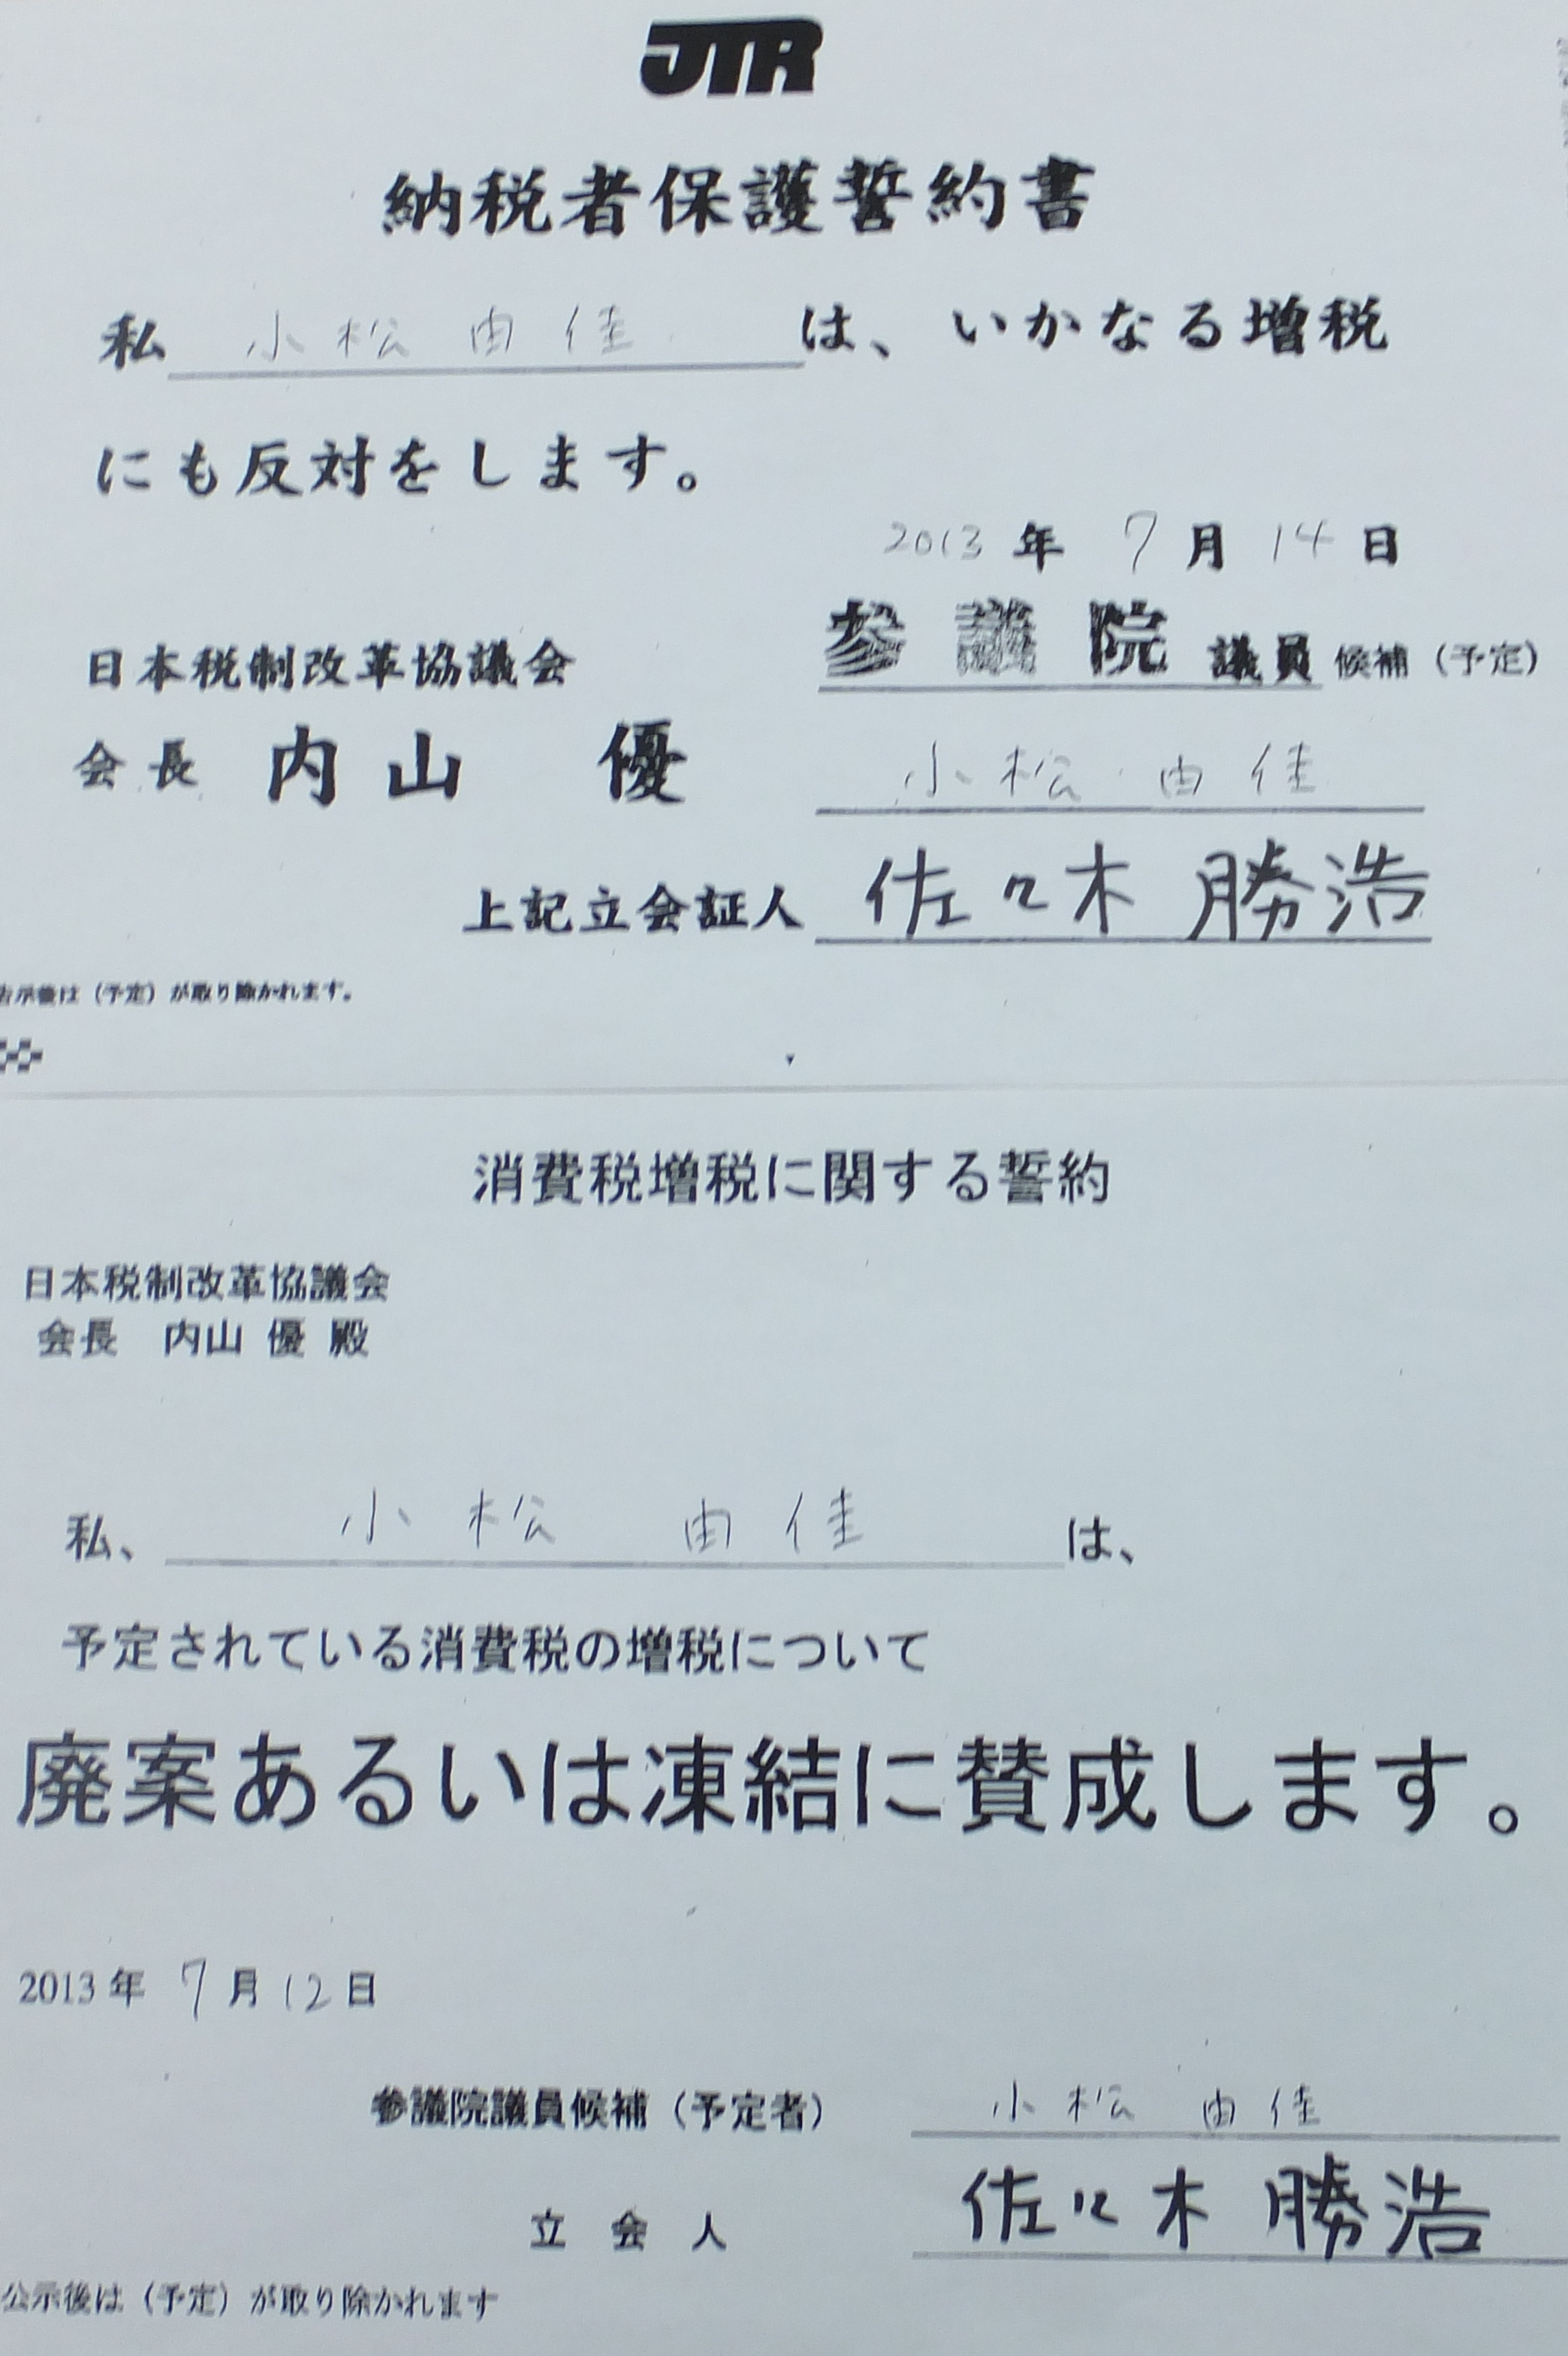 JTR
納税者保護誓約書
私 小松 由佳 は、いかなる増税
にも反対をします。
2013 年 7 月 14 日
日本税制改革協議会
参議院 議員 候補（予定）
会長 内山 優
小松 由佳
上記立会証人 佐々木 勝浩
示後は（予定）が取り除かれます。
消費税増税に関する誓約
日本税制改革協議会
会長 内山 優 殿
私、 小松 由佳 は、
予定されている消費税の増税について
廃案あるいは凍結に賛成します。
2013 年 7 月 12 日
参議院議員候補（予定者） 小松 由佳
立会人 佐々木 勝浩
公示後は（予定）が取り除かれます